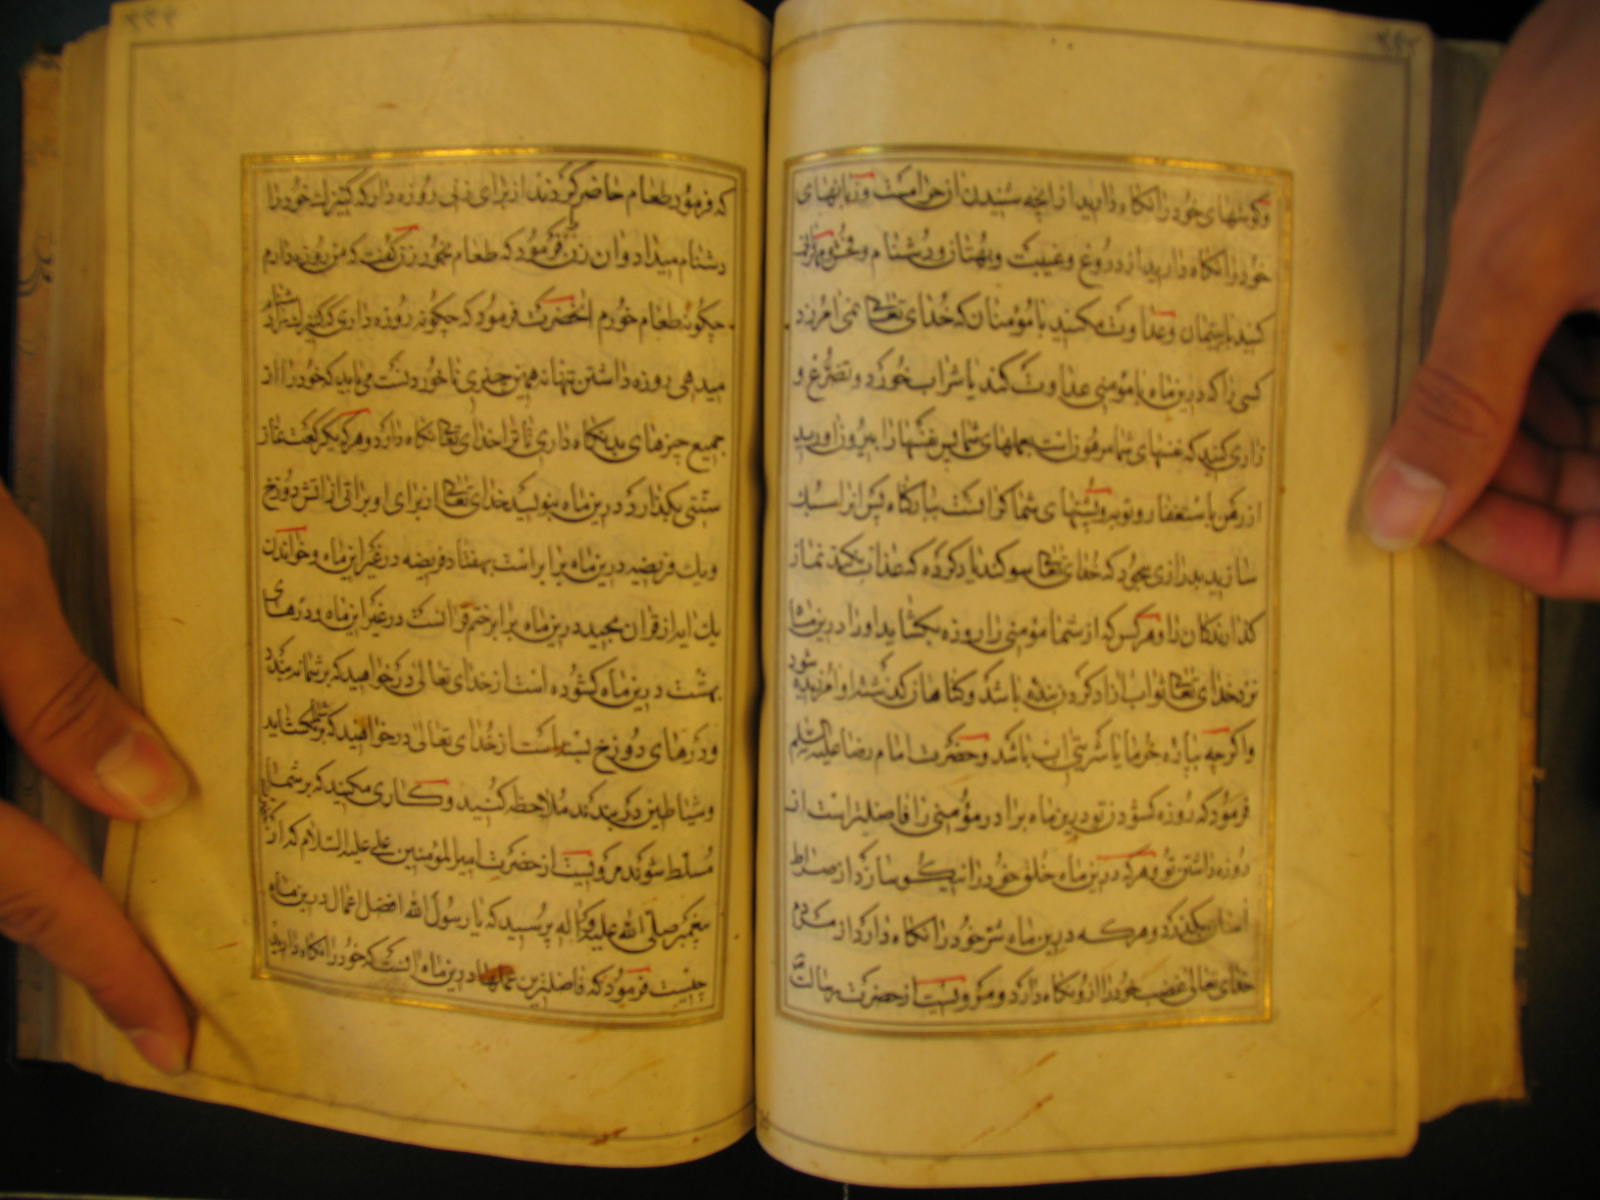 و گوشهای خود را نگاه دارید از انچه شنیدن ان حرامست و زبانهای
خود را نگاه دارید از دروغ و غیبت و بهتان و دشنام و فحش و
کنید با یتیمان و عداوت مکنید با مؤمنان که خدای تعالی نمی امرزد
کسی را که درین ماه با مومنی عداوت کند یا شراب خورد و تضرع و
زاری کنید که نفسهای شما مرهونست بعملهای شما پس نفسها را بیرون اورید
از رهن باستغفار و توبه و پشتهای شما کرانست ببار گناه پس انرا سبک
سازید بدرازی سجود که خدای تعالی سوکند یاد کرده که عذاب نکند نماز
گذارندگان را و هرکس که از شما مؤمنی را روزه بگشاید او را درین ماه
نزد خدای تعالی ثواب ازاد کردن بنده باشد و گناهان گذشته او امرزیده شود
و اگرچه بپاره خرما یا شربتی اب باشد و حضرت امام رضا علیه السلم
فرمود که روزه گشودن تو درین ماه برادر مؤمنی را فاضلتراست از
روزه داشتن تو و هرکه درین ماه خلق خود را نیکو سازد از صراط
اسان بگذرد و هرکه درین ماه شر خود را نگاه دارد از مردم
خدای تعالی غضب خود را از و نگاه دارد و مرویست از حضرت رسالت
که فرمود طعام حاضر کردند از برای زنی روزه دار که کنیزک خود را
دشنام میداد و ان زن را فرمود که طعام بخور زن گفت که من روزه دارم
چگونه طعام خورم انحضرت فرمود که چگونه روزه داری که کنیزک را دشنام
میدهی روزه داشتن تنها نه همین چیزی نا خوردنست می باید که خود را از
جمیع چیزهای بد نگاه داری تا ترا خدای تعالی نگاه دارد و هرکه یک رکعت نماز
سنتی بگذارد درین ماه بنویسد خدای تعالی از برای او براتی از اتش دوزخ
و یک فریضه درین ماه برابر است بهفتاد فریضه در غیر این ماه و خواندن
یک ایه از قران مجید درین ماه برابر ختم قرانست در غیر این ماه و درهای
بهشت درین ماه کشوده است از خدای تعالی درخواهید که بر شما نه بندد
و درهای دوزخ بسته است از خدای تعالی درخواهید که بر شما نگشاید
و شیاطین در بندند ملاحظه کنید و کاری مکنید که بر شما
مسلط شوند مرویست از حضرت امیر المؤمنین علی علیه السلام که از
پیغمبر صلی الله علیه و اله پرسید که یا رسول الله افضل اعمال درین ماه
چیست فرمود که فاضلترین عملها درین ماه انست که خود را نگاه دارید